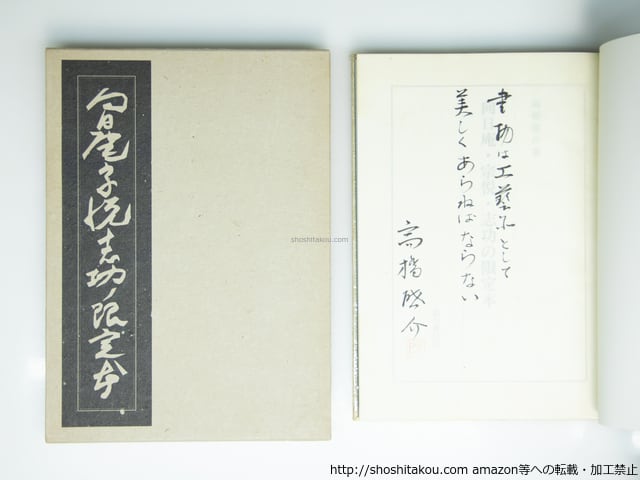 向日庵宗悦志功ノ限定本
書物は工藝品として
美しくあらねばならない
高橋啓介
向日庵・宗悦・志功の限定本
shoshitakou.com
http://shoshitakou.com amazon等への転載・加工禁止